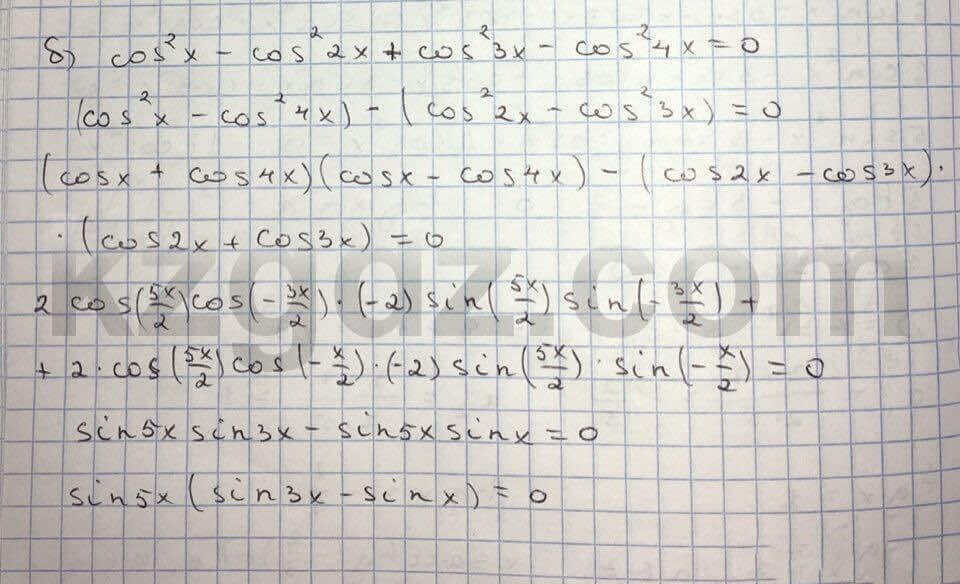 б) cos²x - cos²2x + cos²3x - cos²4x = 0
(cos²x - cos²4x) - (cos²2x - cos²3x) = 0
(cosx + cos4x)(cosx - cos4x) - (cos2x - cos3x)·
·(cos2x + cos3x) = 0
kzgdz.com
2 cos(5x/2)cos(-3x/2)·(-2)sin(5x/2)sin(-3x/2) +
+ 2·cos(5x/2)cos(-x/2)·(-2)sin(5x/2)·sin(-x/2) = 0
sin5x sin3x - sin5x sinx = 0
sin5x(sin3x - sinx) = 0